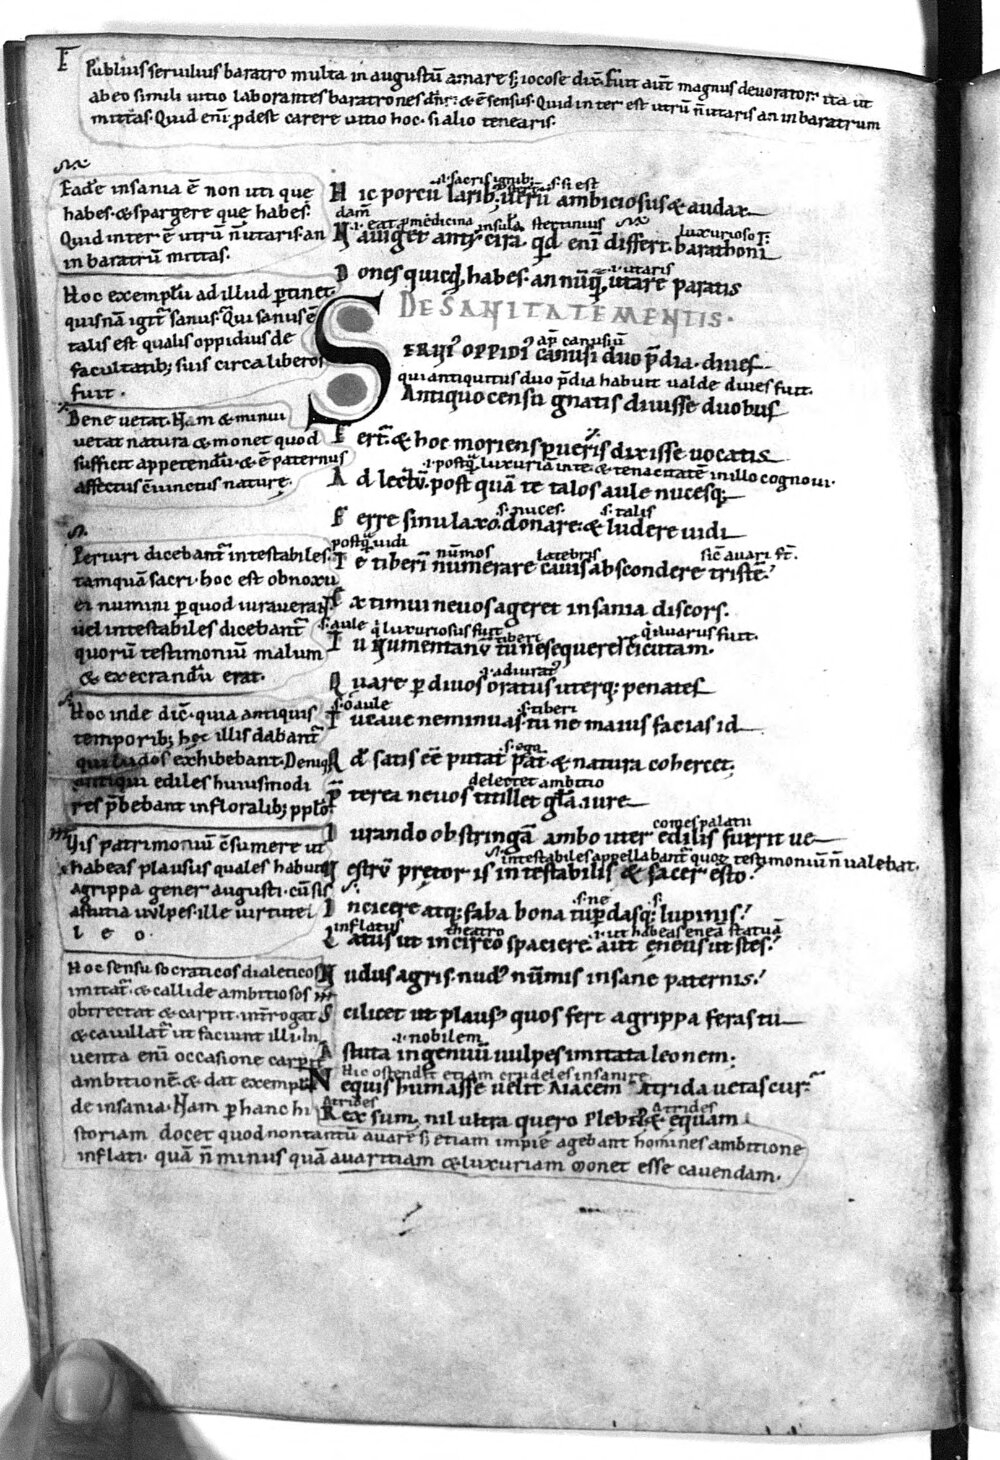 Publius seruilius baratro multa in augustū amare s; iocose dix̄. Fuit aut̄ magnus deuorator. ita ut
ab eo simili uitio laborantes baratrones dn̄r. & ē sensus. Quid inter est utrū n̄ utaris an in baratrum
mittas. Quid eni ꝓdest carere uitio hoc. si alio tenearis.
Eadē insania ē non uti que
habes. & spargere que habes.
Quid inter ē utrū n̄ utaris. an
in baratrū mittas.
.i. sacris ignib; .s. si est
Hic porcū larib; uerū ambiciosus & audax
.i. eat ꝓ medicina insula luxurioso
Nauiget anticira. qd eni differt. barathoni
.i. utaris
Dones quicqd habes. an nūq̄ utare paratis
Hoc exemplū ad illud ꝑtinet
quisnā igit̄ sanus. Qui sanus ē
talis est qualis oppidius de
facultatib; suis circa liberos
fuit.
DE SANITATE MENTIS.
ap̄ canusiū
SERVI' OPPIDI' canusi duo p̄dia. diues
qui antiquitus duo p̄dia habuit ualde diues fuit.
Antiquo censu gnatis diuisse duobus
Bene uetat. Nam & minui
uetat natura & monet quod
sufficit appetendū. & ē paternus
affectus c̄iunctus naturę.
Fert̄. & hoc moriens pueris dixisse uocatis
.i. postq̄ luxuriā in te. & tenacitatē in illo cognoui.
Ad lectū. post quā te talos aule nucesq;
.s. nuces. .s. talis
Ferre sinu laxo. donare. & ludere uidi
postq̄ uidi nūmos latebris sic̄ auari st̄.
Te tiberi numerare cauis abscondere tristē.
Periuri dicebant̄ intestabiles.
tamquā sacri. hoc est obnoxii
ei numini ꝑ quod iurauerant
uel intestabiles dicebant̄
quorū testimoniū malum
& execrandū erat.
Extimui ne uos ageret insania discors.
.s. aule q̄ luxuriosus fuit tiberi q̄ auarus fuit.
Tu numentanū. tu ne sequerēr cicutam.
.i. adiurat'
Quare ꝑ diuos oratus uterq; penates
.s. o aule .s. tiberi
Tu caue ne minuas. tu ne maius facias id
Hoc inde dic̄. quia antiquis
temporib; hęc illis dabant̄
qui ludos exhibebant. Deniq;
antiqui ediles huiusmodi
res p̄bebant in floralib; pplō.
.s. ego
Qd satis eē putat pat̄. & natura cohercet.
delectet ambitio
P̄terea ne uos titillet gl̄a. iure
comes palatii
Iurando obstringā ambo uter edilis fuerit ue
.s. intestabiles appellabant̄ quoꝝ testimoniū n̄ ualebat.
Vestrū pretor is intestabilis & sacer esto.
Vis patrimoniū c̄sumere ut
habeas plausus quales habuit
agrippa gener augusti. cū sis
astutia uulpes. ille uirtute
leo.
.s. ne .s.
In cicere atq; faba bona tu ꝑdasq; lupinis.
inflatus theatro .i. ut habeas eneā statuā
Latus ut in circo spaciere. aut eneus ut stes.
Nudus agris. nud' nūmis insane paternis.
Scilicet ut plaus' quos fert agrippa feras tu
.i. nobilem
Astuta ingenuū uulpes imitata leonem.
Hic ostendit etiam crudeles insanire
Nequis humasse uelit Aiacem Atrida uetas cur.
Atrides Atrides
Rex sum. nil ultra quero plebei'. & equam
Hoc sensu socraticos dialeticos
imitat̄. & callide ambitiosos
obtrectat & carpit. int̄rogat
& cauillat̄ ut faciunt illi. In
uenta eni occasione carpit
ambitionē. & dat exemplū
de insania. Nam ꝑ hanc hi
storiam docet quod non tantū auare s; etiam impie agebant homines ambitione
inflati. quā n̄ minus quā auaritiam & luxuriam monet esse cauendam.